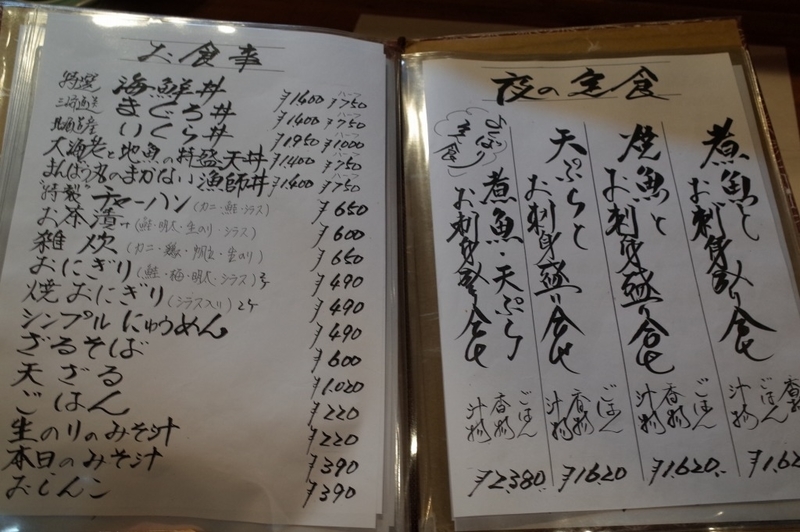 お食事
特選 海鮮丼 ¥1400 ハーフ ¥750
三崎直送 まぐろ丼 ¥1400 ハーフ ¥750
北海道産 いくら丼 ¥1950 ハーフ ¥1000
大海老と地魚の特盛天丼 ¥1400 ハーフ ¥750
まんぼう名のまかない漁師丼 ¥1400 ハーフ ¥750
"特製" チャーハン (カニ・鮭・シラス) ¥650
お茶漬 (鮭・明太・生のり・シラス) ¥600
雑炊 (カニ・鶏・帆立・生のり) ¥650
おにぎり (鮭・梅・明太・シラス) ¥490
焼おにぎり (シラス入り) 2ケ ¥490
シンプルにゅうめん ¥490
ざるそば ¥600
天ざる ¥1,020
ごはん ¥220
生のりのみそ汁 ¥220
本日のみそ汁 ¥390
おしんこ ¥390
夜の定食
煮魚とお刺身盛り合せ
ごはん
香物
汁物
¥1,62
焼魚とお刺身盛り合せ
ごはん
香物
汁物
¥1,620.
天ぷらとお刺身盛り合せ
ごはん
香物
汁物
¥1620
よくばり定食
煮魚・天ぷら
お刺身盛り合せ
ごはん
香物
汁物
¥2,380